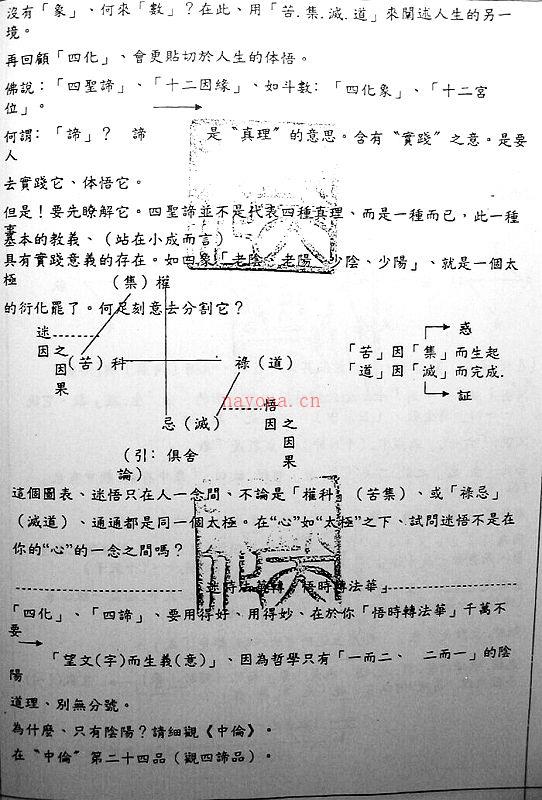 沒有「象」、何來「數」？在此、用「苦.集.滅.道」來闡述人生的另一
境。
再回顧「四化」、會更貼切於人生的体悟。
佛說：「四聖諦」、「十二因緣」、如斗數：「四化象」、「十二宮
位」。
何謂：「諦」？ 諦 是〝真理〞的意思。含有〝實踐〞之意。是要
人
去實踐它、体悟它。
但是！要先瞭解它。四聖諦並不是代表四種真理、而是一種而已，此一種
事
基本的教義、（站在小成而言）
具有實踐意義的存在。如四象「老陰、老陽、少陰、少陽」、就是一個太
極
（集）權
的衍化罷了。何足刻意去分割它？
迷
因之
因
果
（苦）科
祿（道）
惑
「苦」因「集」而生起
「道」因「滅」而完成.
証
nayona.cn
悟
因之
因
果
忌（滅）
（引：俱舍
論）
這個圖表、迷悟只在人一念間、不論是「權科」（苦集）、或「祿忌」
（滅道）、通通都是同一個太極。在“心”如“太極”之下、試問迷悟不是在
你的“心”的一念之間嗎？
「迷時法華轉、悟時轉法華」
「四化」、「四諦」、要用得好、用得妙、在於你「悟時轉法華」千萬不
要
「望文(字)而生義(意)」、因為哲學只有「一而二、 二而一」的陰
陽
道理、別無分號。
為什麼、只有陰陽？請細觀《中倫》。
在〝中倫〞第二十四品（觀四諦品）。